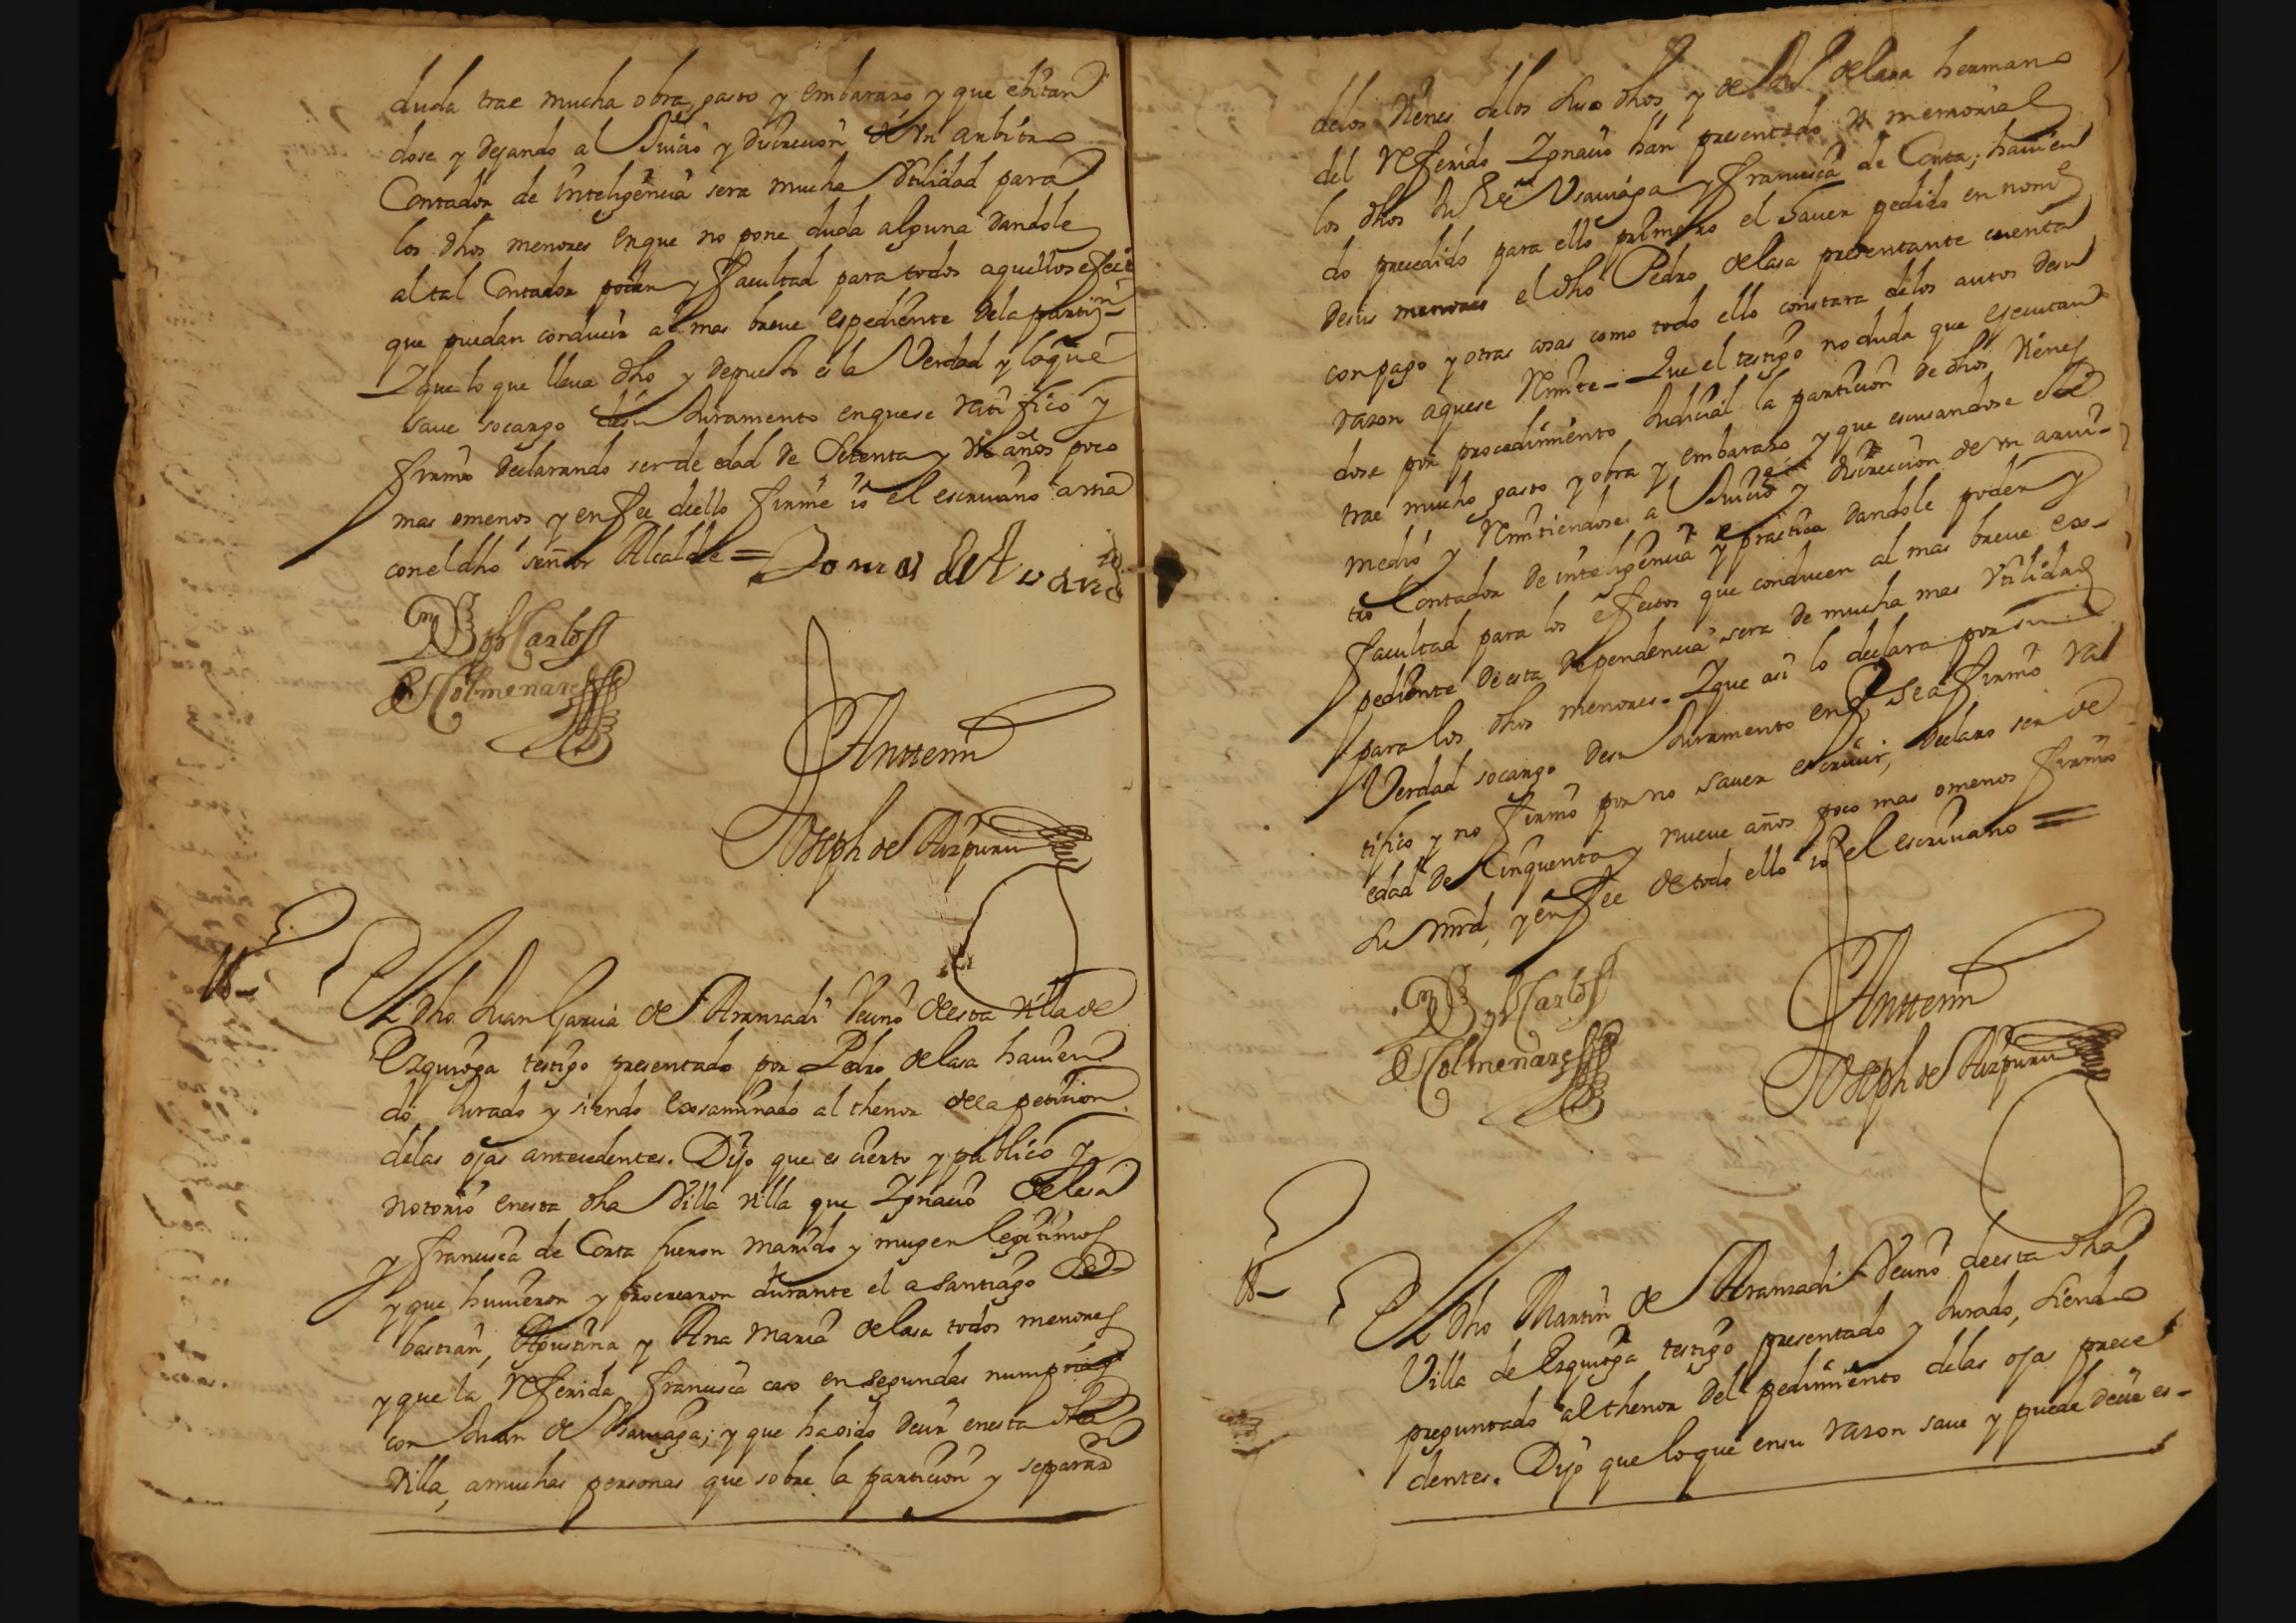 duda trae mucha obra, gasto y embarazo y que ebitan
dose y dejando al Juicio y discrecion de un arbitro
Contador de inteligencia sera mucha Vtilidad para
los dhos menores enque no pone duda alguna dandole
al tal Contador poder y facultad para todos aquellos efectos
que puedan conducir al mas breue espediente dela partizn
Ique lo que lleua dho y depuesto es la Verdad y loque
saue socargo desu Juramento enquese ratifico y
firmo declarando ser de edad de Setenta y años poco
mas omenos y en fee deello firme io el escriuano
conel dho señor Alcalde =
Dn Joseph Carlos
de Colmenares
Anttemi
Joseph de Aizpuru
tto
El dho Juan Garcia de Aranzadi Vecino deesta villa de
Ezquioga testigo presentado por Pedro delasa hauien
do Jurado y siendo exsaminado al thenor dela peticion
delas ojas antecedentes. Dijo que es cierto y publico y
notorio enesta dha Villa villa que Ignacio delasa
y francisca de Corta fueron marido y muger legitimos
y que huuieron y procrearon durante el a Santiago Se
bastian, Agustina y Ana Maria delasa todos menores
y que la Referida francisca caso en segundas numpcias
con Juan de Vsauiaga; y que ha oido decir enesta dha
villa, amuchas personas que sobre la particion y separan
delos Vienes delos Suso dhos y de delasa hermano
del Referido Ignacio han presentado Vn memorial
los dhos Jn de Vsauiaga y francisca de Corta; hauien
do precedido para ello primero el hauer pedido en nome
desus menores el dho Pedro delasa presentante cuenta
con pago y otras cosas como todo ello constara delos autos desu
razon aquese Remite - Que el testigo no duda que ejecutan
dose por procedimiento Judicial la particion de dhos Vienes
trae mucho gasto y obra y embarazo y que escusandose este
medio y Remitiendose al Juicio y discrecion de vn arui-
tro Contador de inteligencia y practica dandole poder y
facultad para los efectos que conducen al mas breue exs-
pediente de esta dependencia sera de mucha mas Vtilidad
para los dhos menores. Ique asi lo declara por su
Verdad socargo desu Juramento en q se afirmo ra
tifico y no firmo por no sauer escriuir, declaro ser de
edad de Cinquenta y nueue años poco mas omenos firmo
Su mrd, y en fee de todo ello io el escriuano =
Dn Joseph Carlos
de Colmenares
Anttemi
Joseph de Aizpuru
tto
El dho Martin de Aranzadi Vecino deesta dha
Villa de Ezquioga testigo presentado y Jurado, siendo
preguntado al thenor del pedimiento delas ojas prece
dentes. Dijo que loque ensu razon saue y puede decir es-